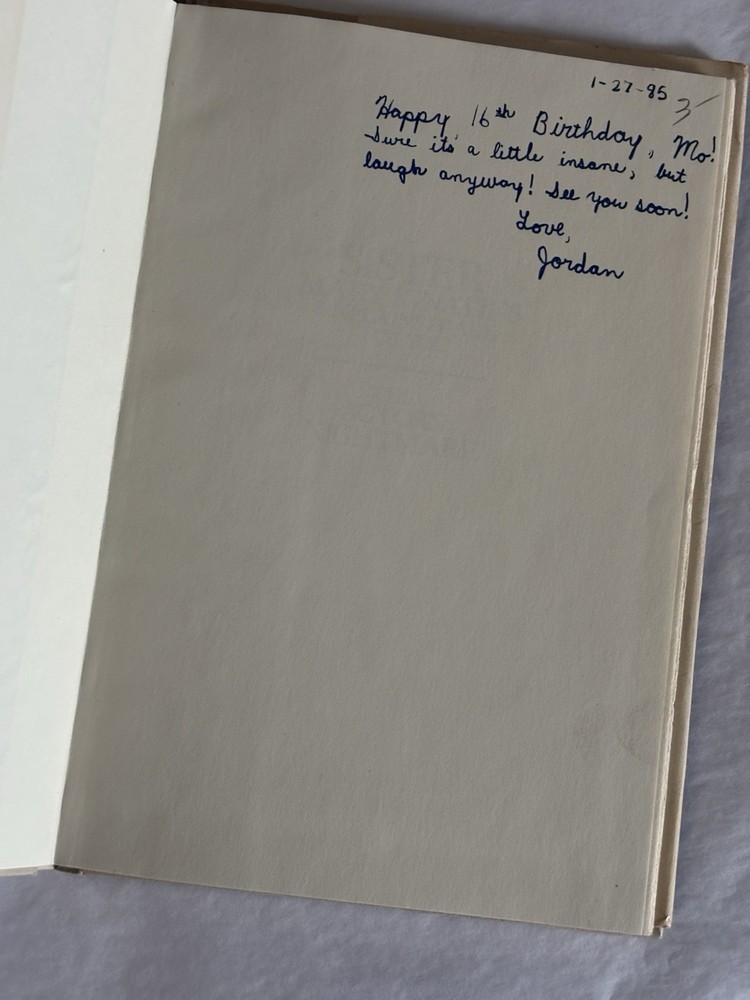 1-27-85
3-
Happy 16th Birthday, Mo!
Sure it's a little insane, but
laugh anyway! See you soon!
Love,
Jordan